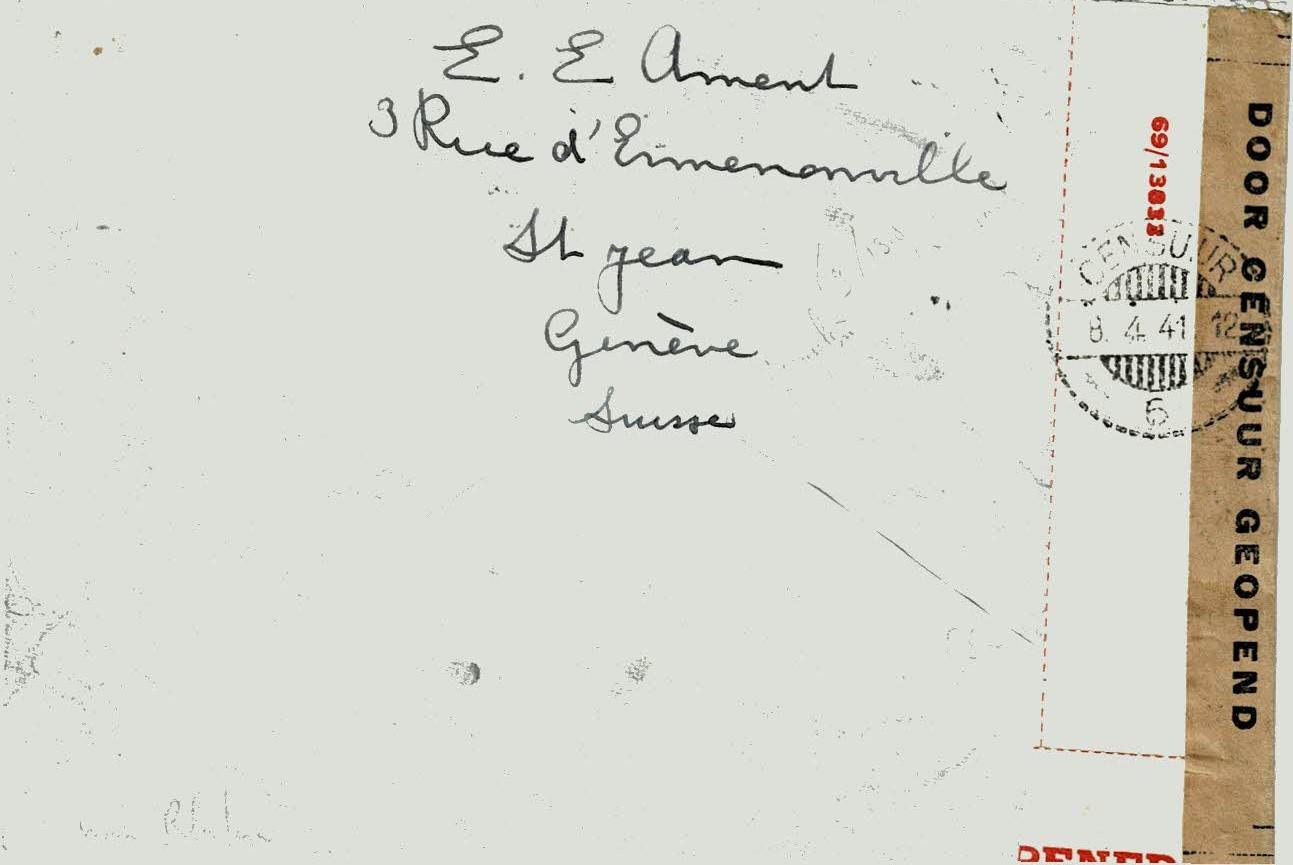 E. E Ament
3 Rue d'Ermenonville
St Jean
Genève
Suisse
69/13833
CENSUUR
8. 4. 41. 12
6
DOOR CENSUUR GEOPEND